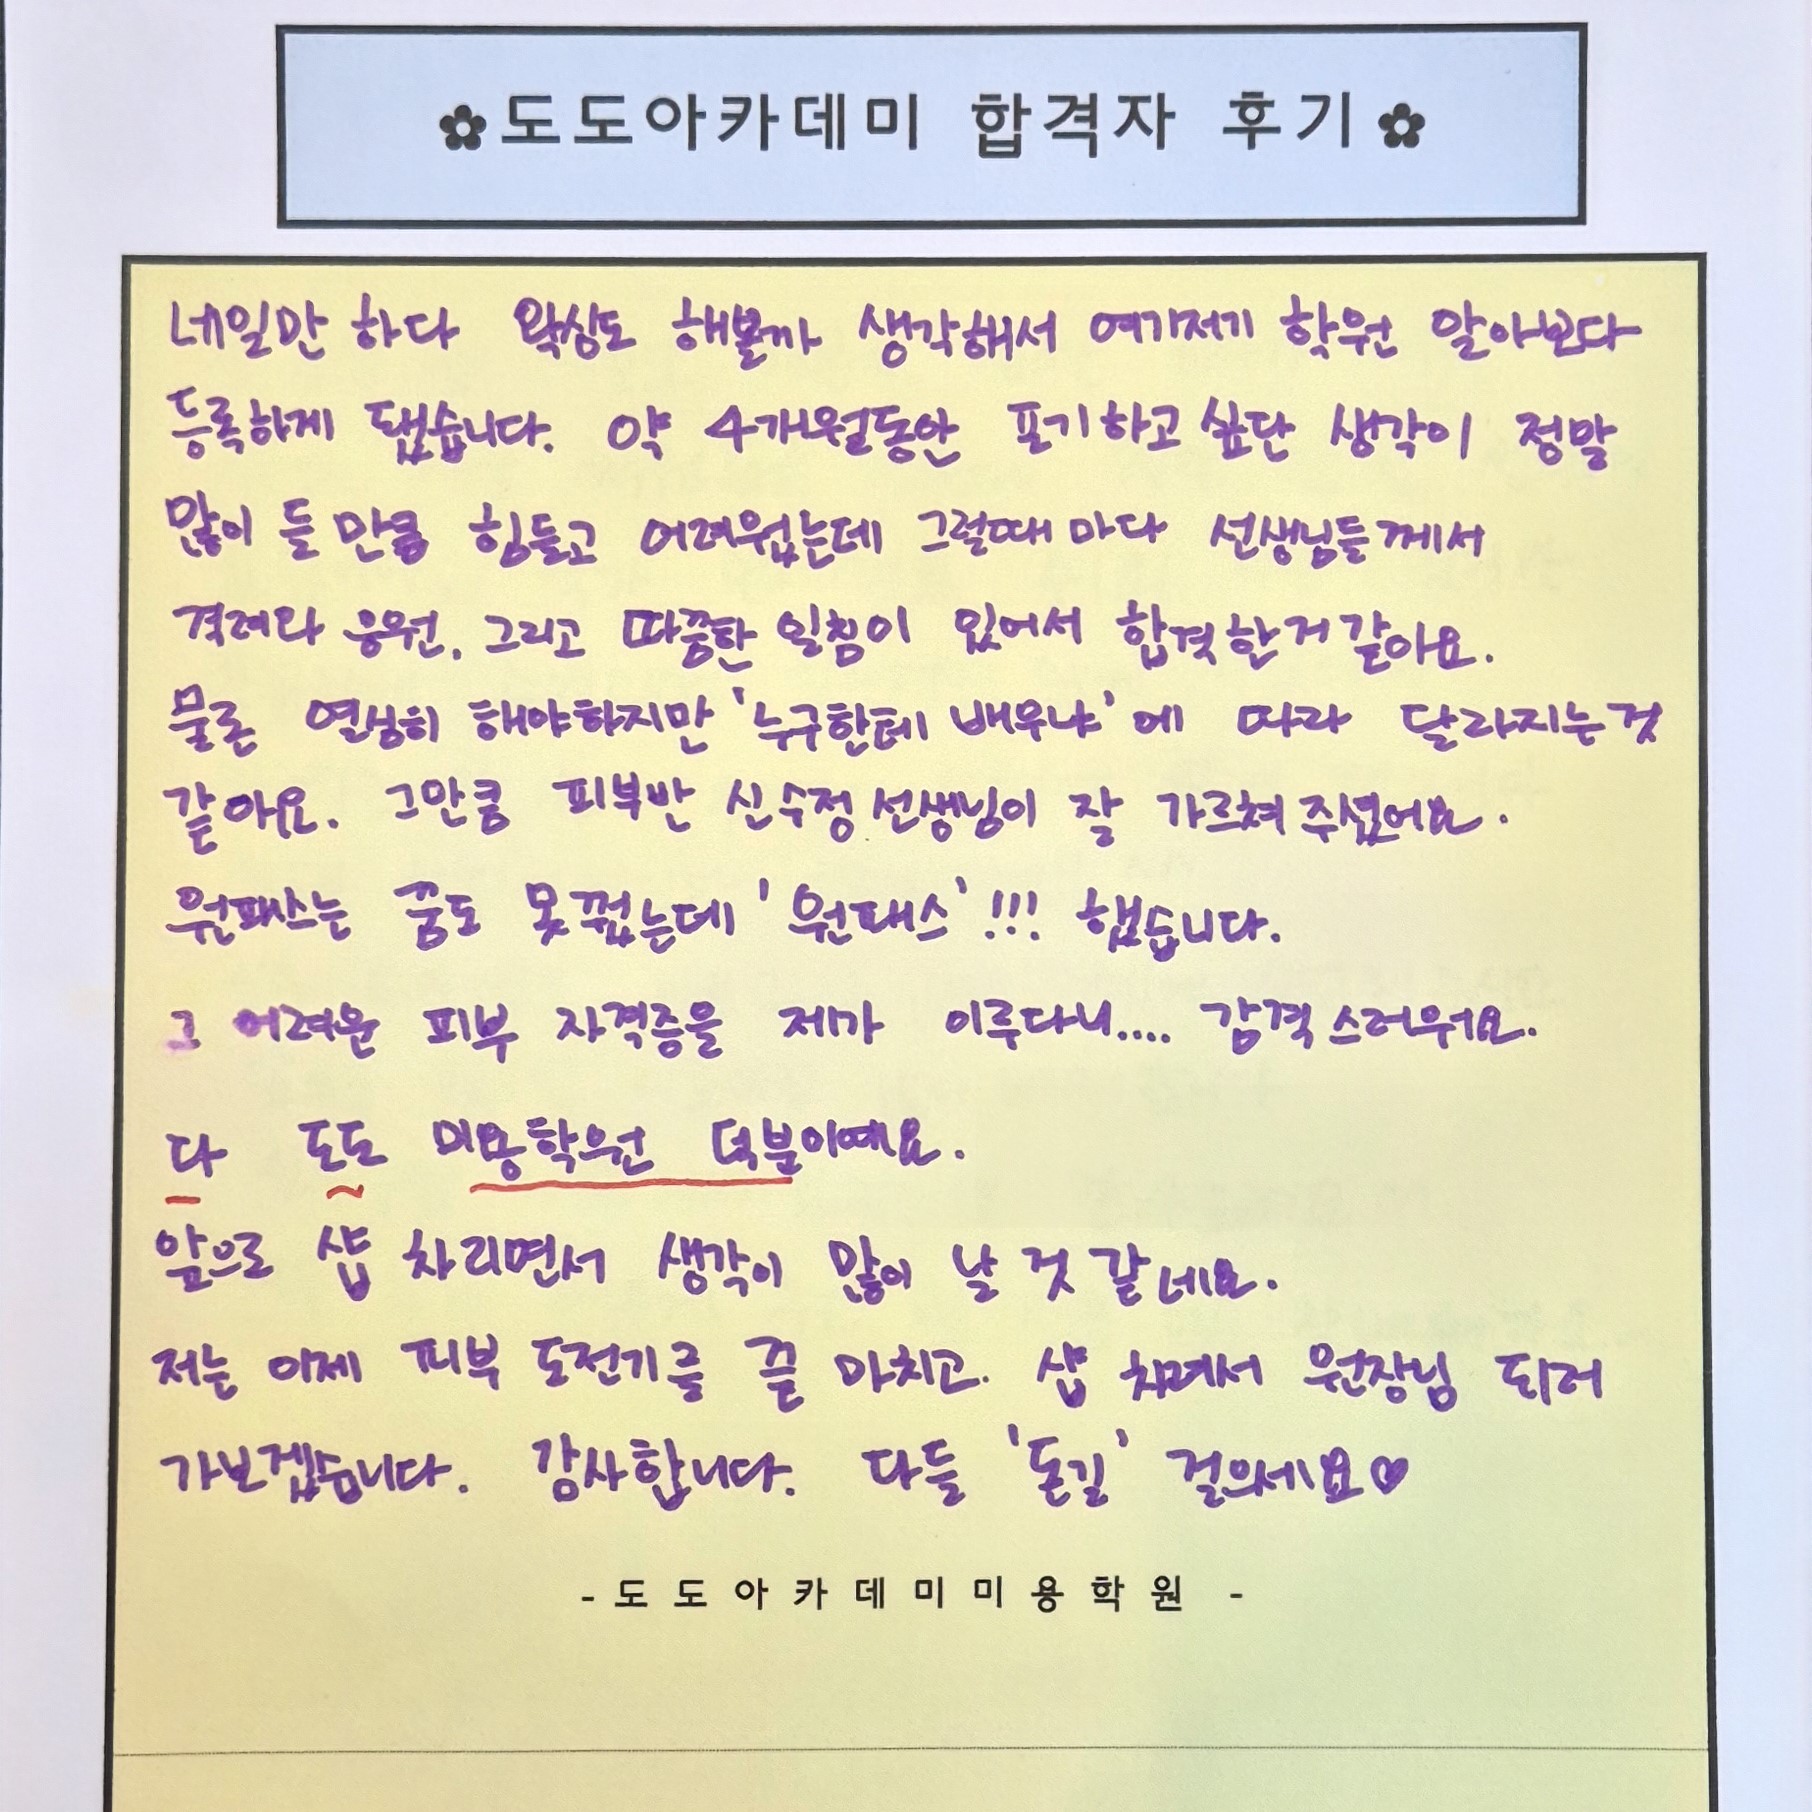 ✿도도아카데미 합격자 후기✿
네일만 하다 왁싱도 해볼까 생각해서 여기저기 학원 알아보다
등록하게 됐습니다. 약 4개월동안 포기하고 싶단 생각이 정말
많이 들 만큼 힘들고 어려웠는데 그럴때 마다 선생님들께서
격려와 응원, 그리고 따끔한 일침이 있어서 합격한거 같아요.
물론 열심히 해야하지만 '누구한테 배우냐'에 따라 달라지는것
같아요. 그만큼 피부반 신수정 선생님이 잘 가르쳐 주셨어요.
원패스는 꿈도 못꿨는데 '원패스'!!! 했습니다.
그 어려운 피부 자격증을 제가 이루다니.... 감격스러워요.
다 도도 미용학원 덕분이예요.
앞으로 샵 차리면서 생각이 많이 날 것 같네요.
저는 이제 피부 도전기를 끝 마치고. 샵 차려서 원장님 되러
가보겠습니다. 감사합니다. 다들 '돈길' 걸으세요♡
- 도도아카데미미용학원 -